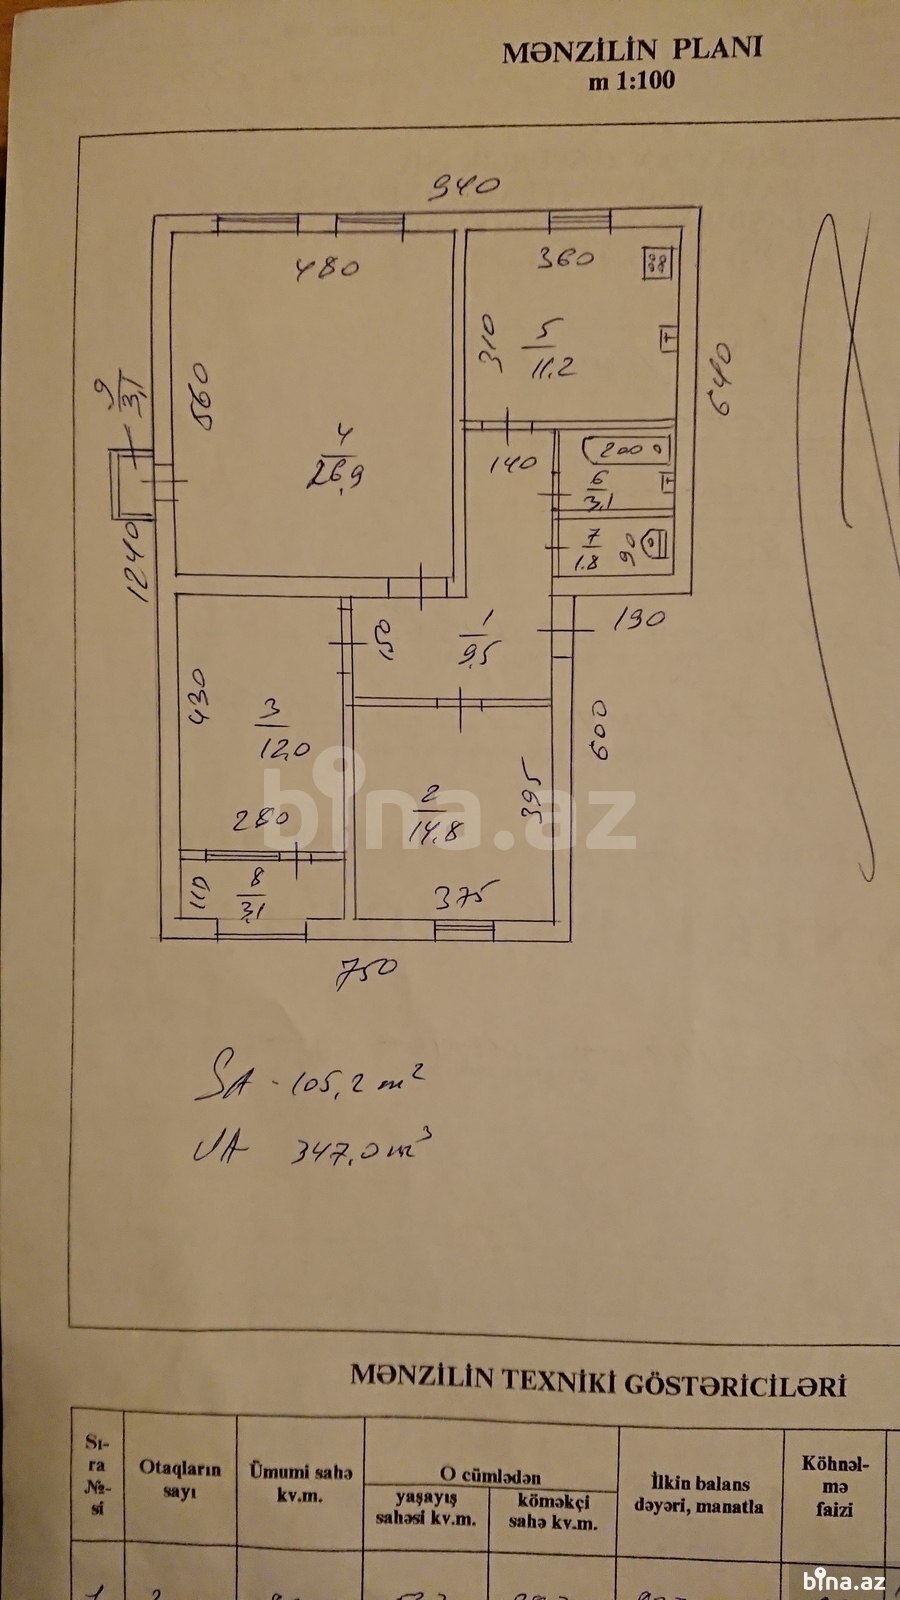 MƏNZİLİN PLANI
m 1:100
940
480
360
310
5
11.2
640
9
3,1
560
4
26,9
140
200
6
3,1
7
1.8
90
1240
150
1
9.5
190
430
3
12,0
600
395
2
14.8
280
110
8
3,1
375
750
SA - 105,2 m²
VA 347,0 m³
bina.az
MƏNZİLİN TEXNİKİ GÖSTƏRİCİLƏRİ
Sı-
ra
№-
si
Otaqların
sayı
Ümumi sahə
kv.m.
O cümlədən
yaşayış
sahəsi kv.m.
köməkçi
sahə kv.m.
İlkin balans
dəyəri, manatla
Köhnəl-
mə
faizi
bina.az